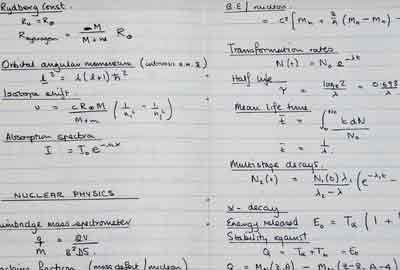 Rydberg Const.
R₀ = R∞
R hydrogen = M / (M + m) R∞
Orbital angular momentum
l² = l(l+1)ħ²
Isotope shift
υ = cR∞M / (M+m) (1/n₁² - 1/n₂²)
Absorption spectra
I = I₀e
NUCLEAR PHYSICS
mass spectrometer
q/M = 2V / B²
fraction (mass defect / nucleon)
B.E / nucleon
= c² [Mₙ + (Mₕ - Mₙ) -
Transformation rates
N(t) = N₀ e^-λt
Half life
τ = log e 2 / λ = 0.693 / λ
Mean life time
t̄ = ∫ t dN / N₀
t̄ = 1/λ
Multistage decays.
N₂(t) = N₁(0) λ₁ / (λ₂ - λ) (e^-λ₁t -
α - decay
Energy released E₀ = Tα (1 +
Stability against
Q = Tα + Tb = E₀
Q = (Z, A) - (Z-2, A-4)